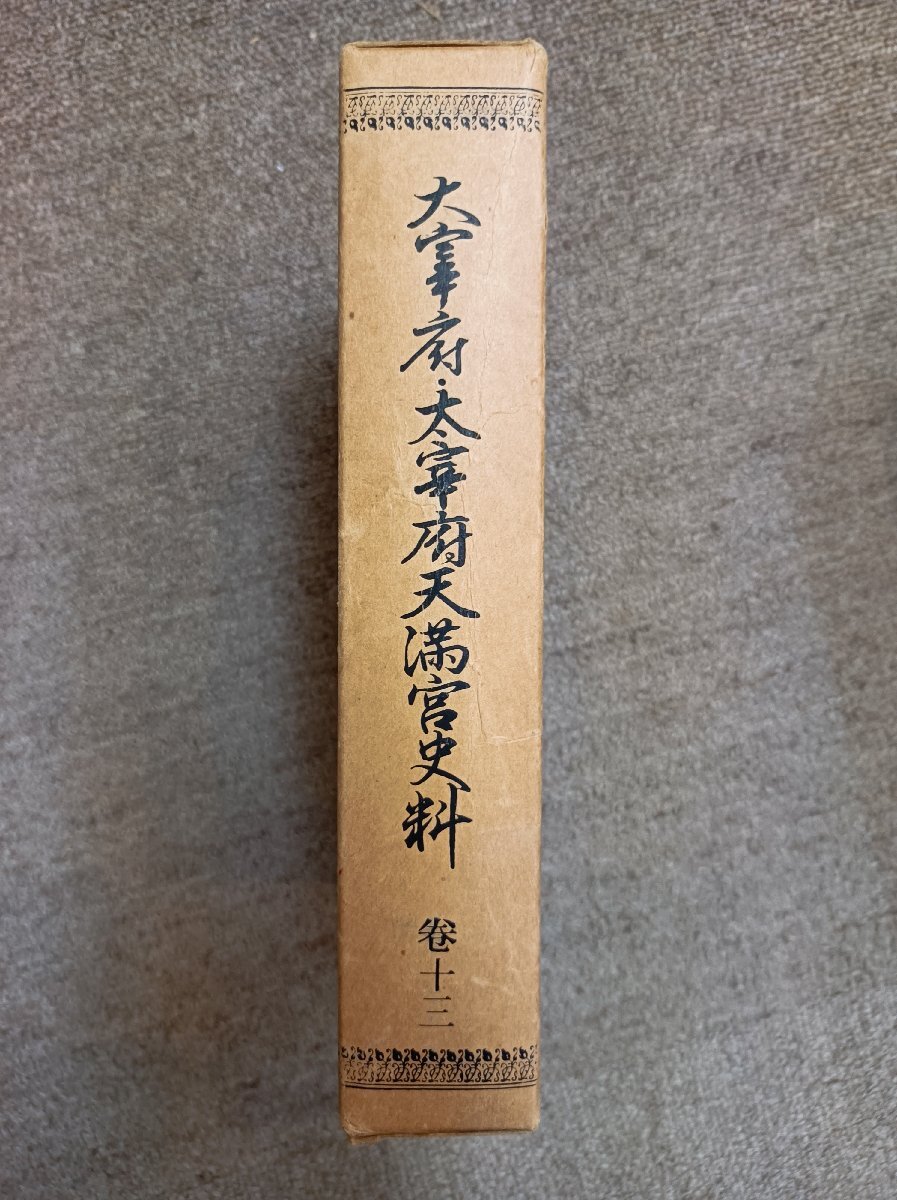 大宰府・太宰府天満宮史料
巻十三